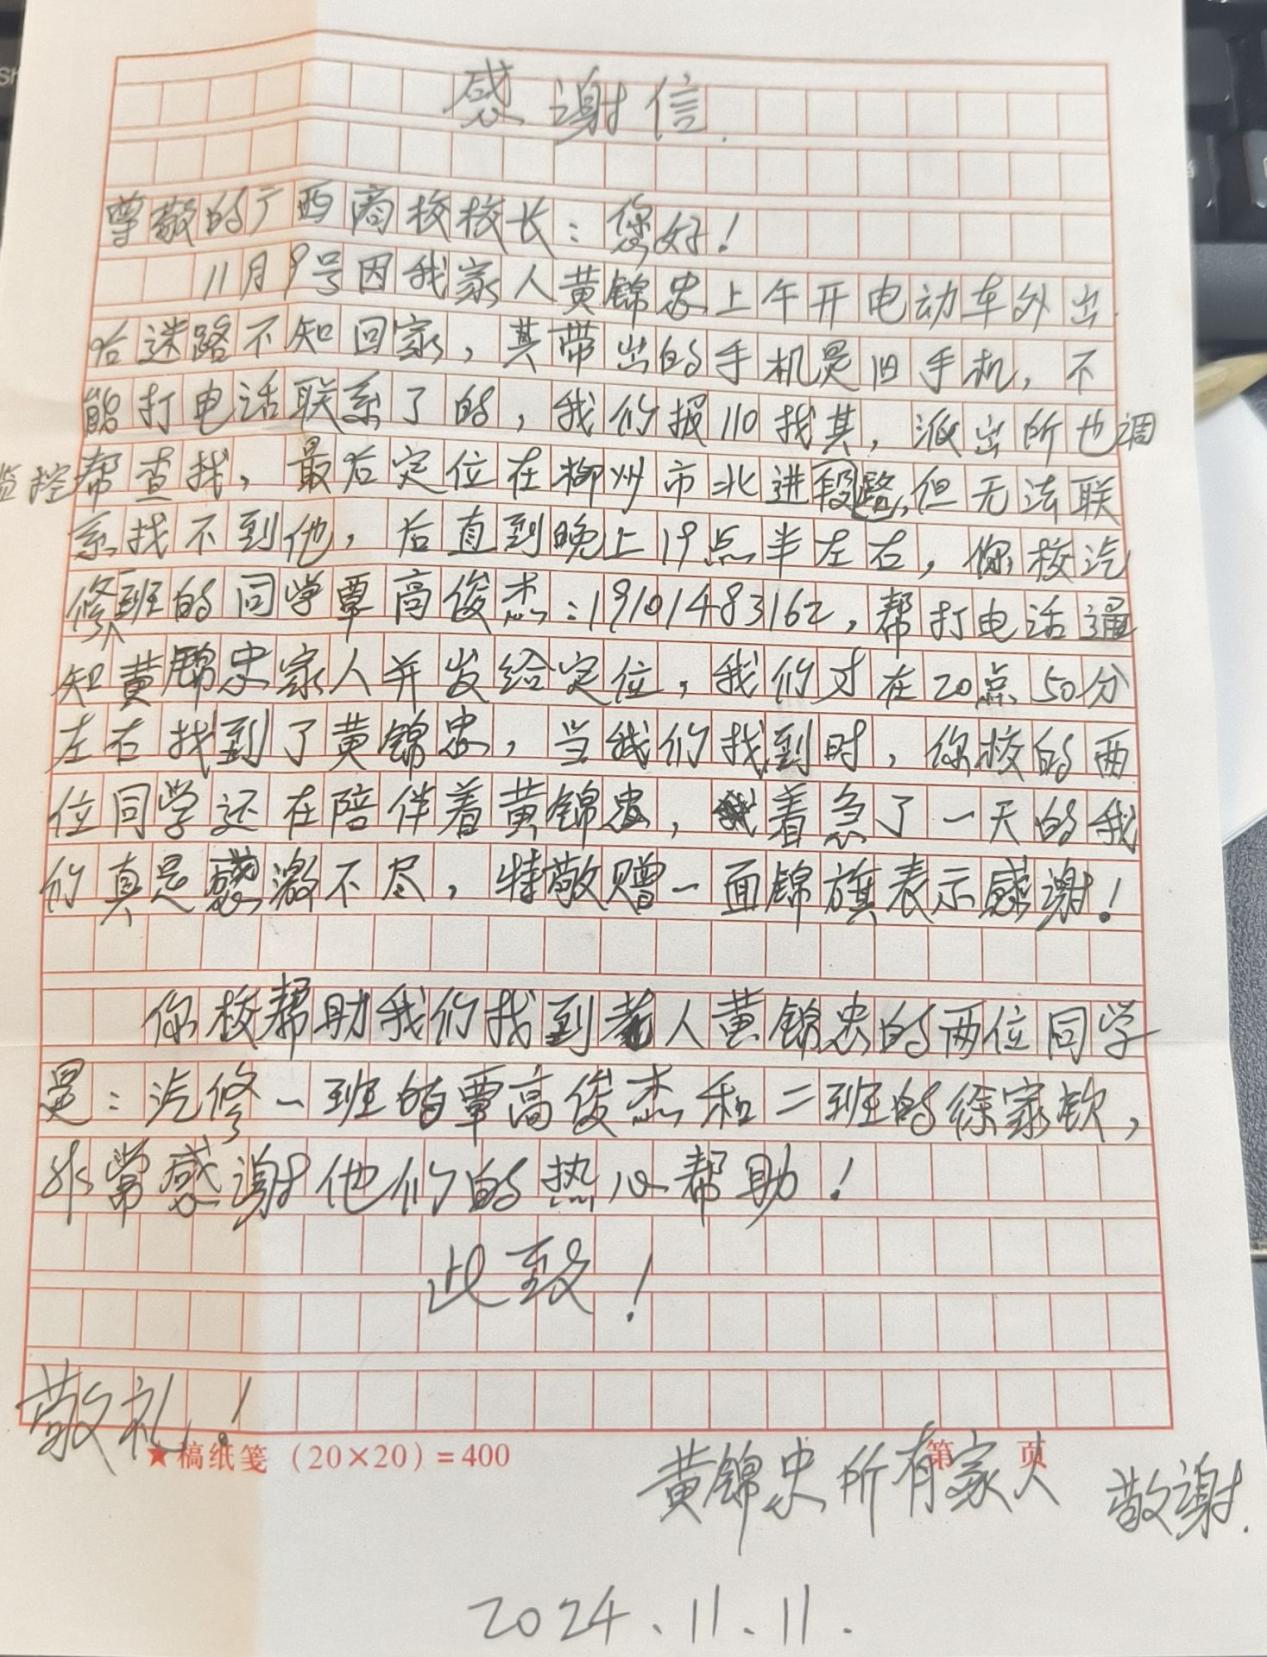 感谢信.
尊敬的广西商校校长：您好！
11月9号因我家人黄锦忠上午开电动车外出
后迷路不知回家，其带出的手机是旧手机，不
能打电话联系了的，我们报110找其，派出所也调
监控帮查找，最后定位在柳州市北进段路，但无法联
系找不到他，后直到晚上19点半左右，你校汽
修班的同学覃高俊杰：19101483162，帮打电话通
知黄锦忠家人并发给定位，我们才在20点50分
左右找到了黄锦忠，当我们找到时，你校的两
位同学还在陪伴着黄锦忠，着急了一天的我
们真是感激不尽，特敬赠一面锦旗表示感谢！
你校帮助我们找到老人黄锦忠的两位同学
是：汽修一班的覃高俊杰和二班的徐家钦，
非常感谢他们的热心帮助！
此致！
敬礼！
★稿纸笺（20×20）=400 第 页
黄锦忠所有家人 敬谢.
2024.11.11.